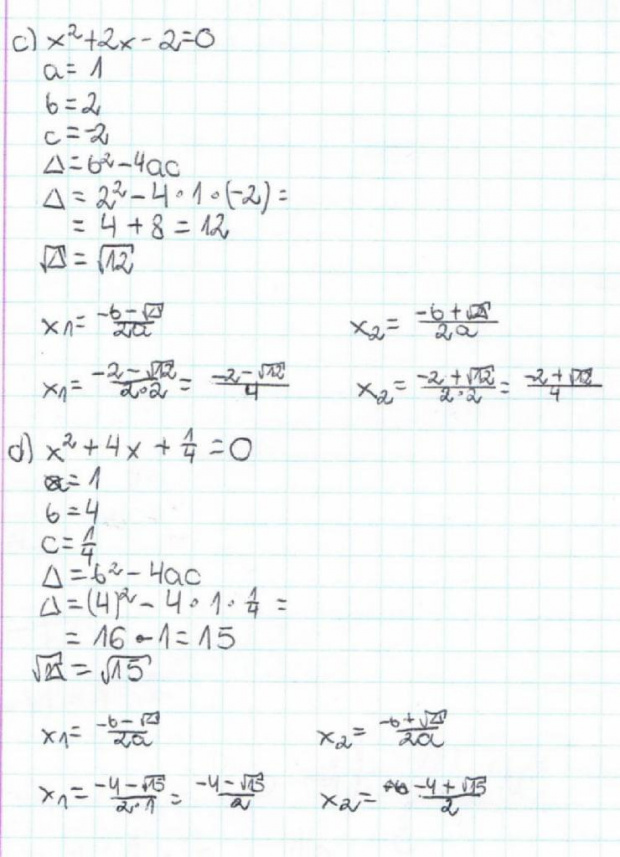 c) x²+2x-2=0
a=1
b=2
c=-2
Δ=b²-4ac
Δ=2²-4·1·(-2)=
=4+8=12
√Δ=√12
x1=(-b-√Δ)/2a x2=(-b+√Δ)/2a
x1=(-2-√12)/(2·2)=(-2-√12)/4 x2=(-2+√12)/(2·2)=(-2+√12)/4
d) x²+4x+1/4=0
a=1
b=4
c=1/4
Δ=b²-4ac
Δ=(4)²-4·1·1/4=
=16-1=15
√Δ=√15
x1=(-b-√Δ)/2a x2=(-b+√Δ)/2a
x1=(-4-√15)/(2·1)=(-4-√15)/2 x2=(-4+√15)/2